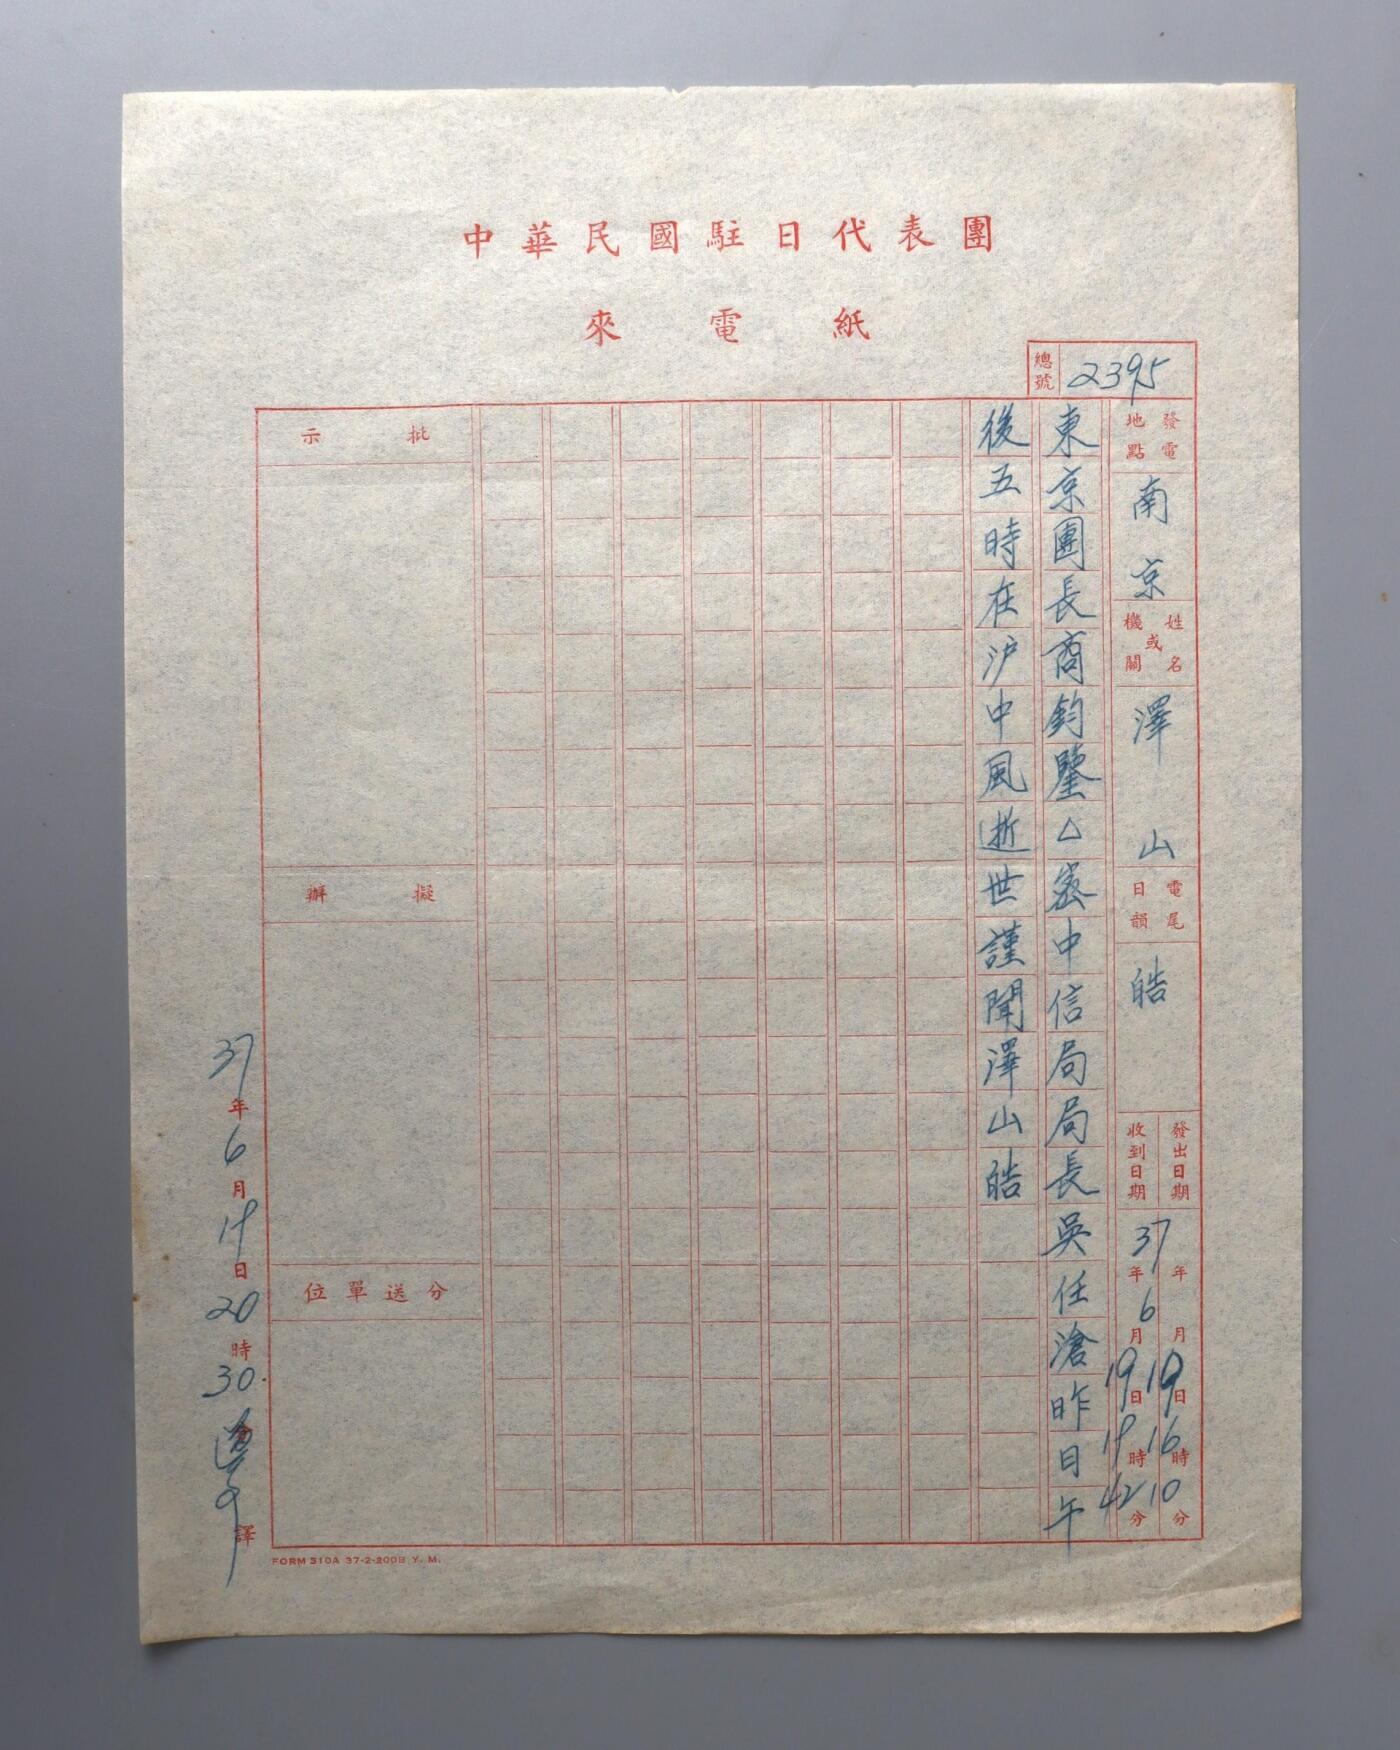 中華民國駐日代表團
來電紙
總號 2395
發電地點 南京
姓名或機關 澤山
電尾日韻 皓
發出日期 年 月 19日 16時 10分
收到日期 37年 6月 19日 19時 42分
東京團長商鈞鑒△密中信局局長吳任滄昨日午
後五時在沪中風逝世謹聞澤山皓
批示
擬辦
分送單位
37年6月19日20時30
譯
FORM 310A 37-2-200B Y. M.